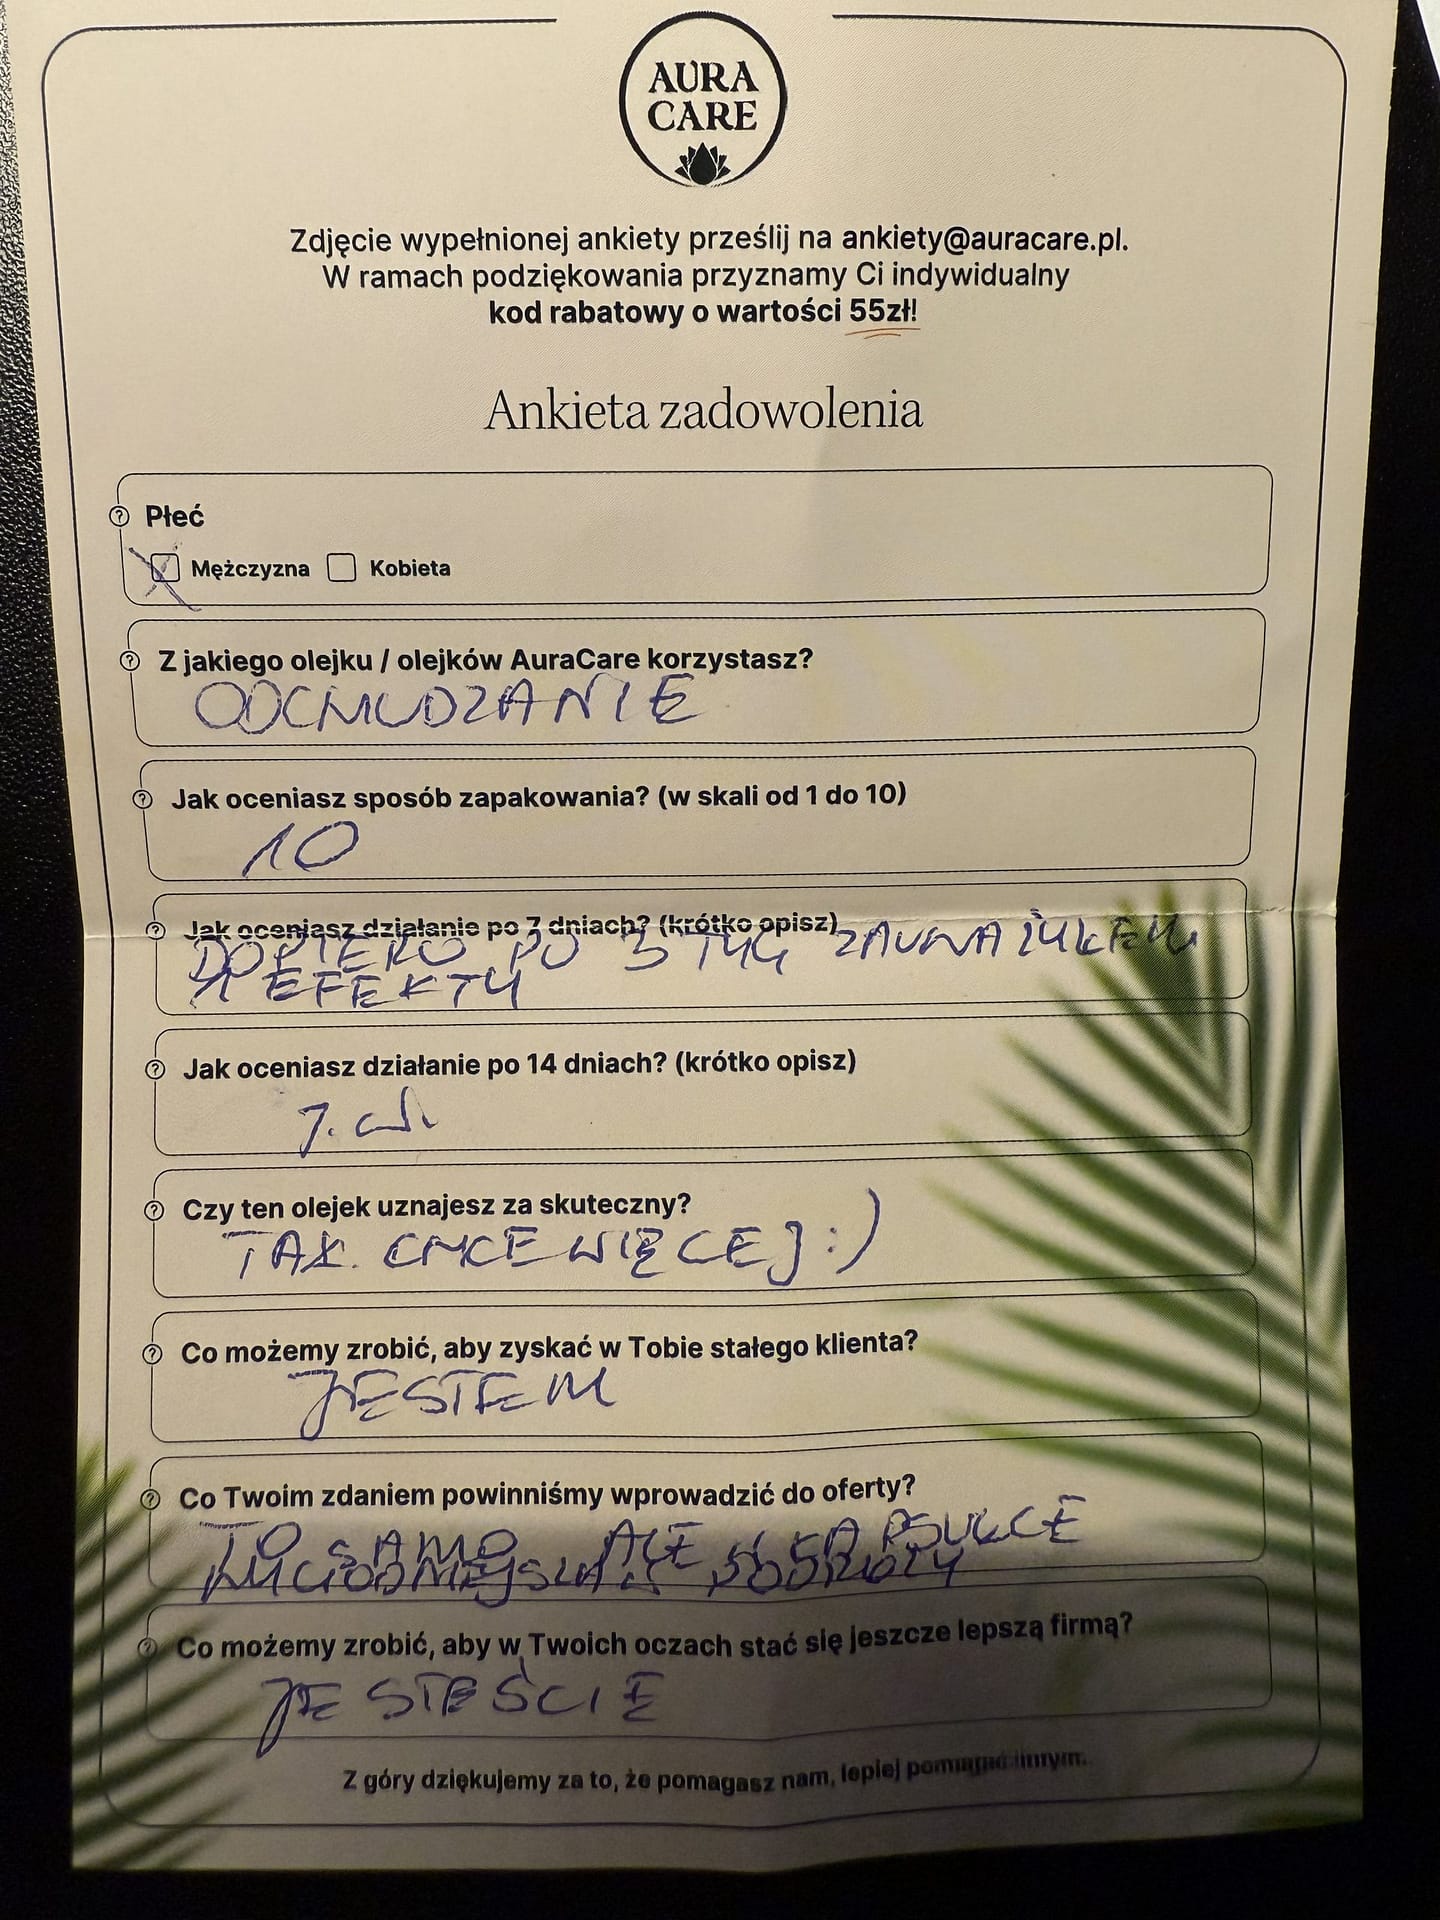 AURA
CARE
Zdjęcie wypełnionej ankiety prześlij na ankiety@auracare.pl.
W ramach podziękowania przyznamy Ci indywidualny
kod rabatowy o wartości 55zł!
Ankieta zadowolenia
Płeć
Mężczyzna Kobieta
Z jakiego olejku / olejków AuraCare korzystasz?
ODCHUDZANIE
Jak oceniasz sposób zapakowania? (w skali od 1 do 10)
10
Jak oceniasz działanie po 7 dniach? (krótko opisz)
DOPIERO PO 3 TYG ZAUWAŻYŁEM
EFEKTY
Jak oceniasz działanie po 14 dniach? (krótko opisz)
Czy ten olejek uznajesz za skuteczny?
TAK. CHCE WIĘCEJ :)
Co możemy zrobić, aby zyskać w Tobie stałego klienta?
JESTEM
Co Twoim zdaniem powinniśmy wprowadzić do oferty?
TO SAMO ALE W KAPSUŁCE
Co możemy zrobić, aby w Twoich oczach stać się jeszcze lepszą firmą?
JESTEŚCIE
Z góry dziękujemy za to, że pomagasz nam, lepiej pomagać innym.